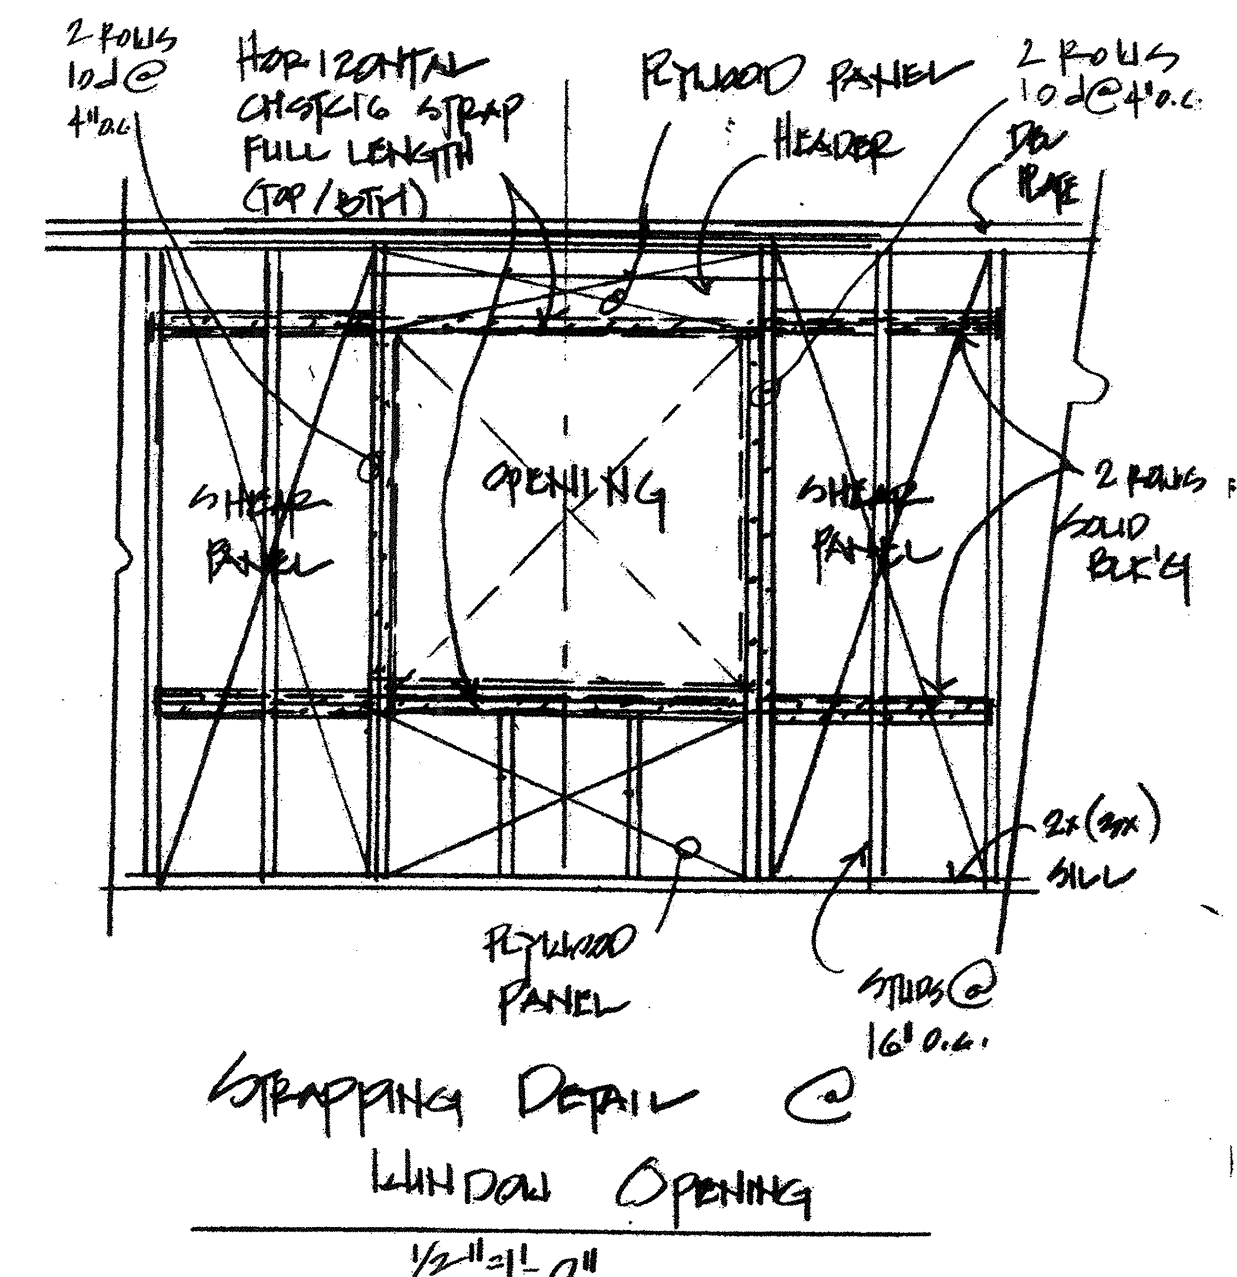 2 ROWS
10d @
4" o.c.
HORIZONTAL
CMSTC16 STRAP
FULL LENGTH
(TOP/BTM)
PLYWOOD PANEL
HEADER
2 ROWS
10d @ 4" o.c.
DBL
PLATE
OPENING
SHEAR
PANEL
SHEAR
PANEL
2 ROWS
SOLID
BLK'G
2x (3x)
SILL
PLYWOOD
PANEL
STUDS @
16" O.C.
STRAPPING DETAIL @
WINDOW OPENING
1/2"=1'-0"